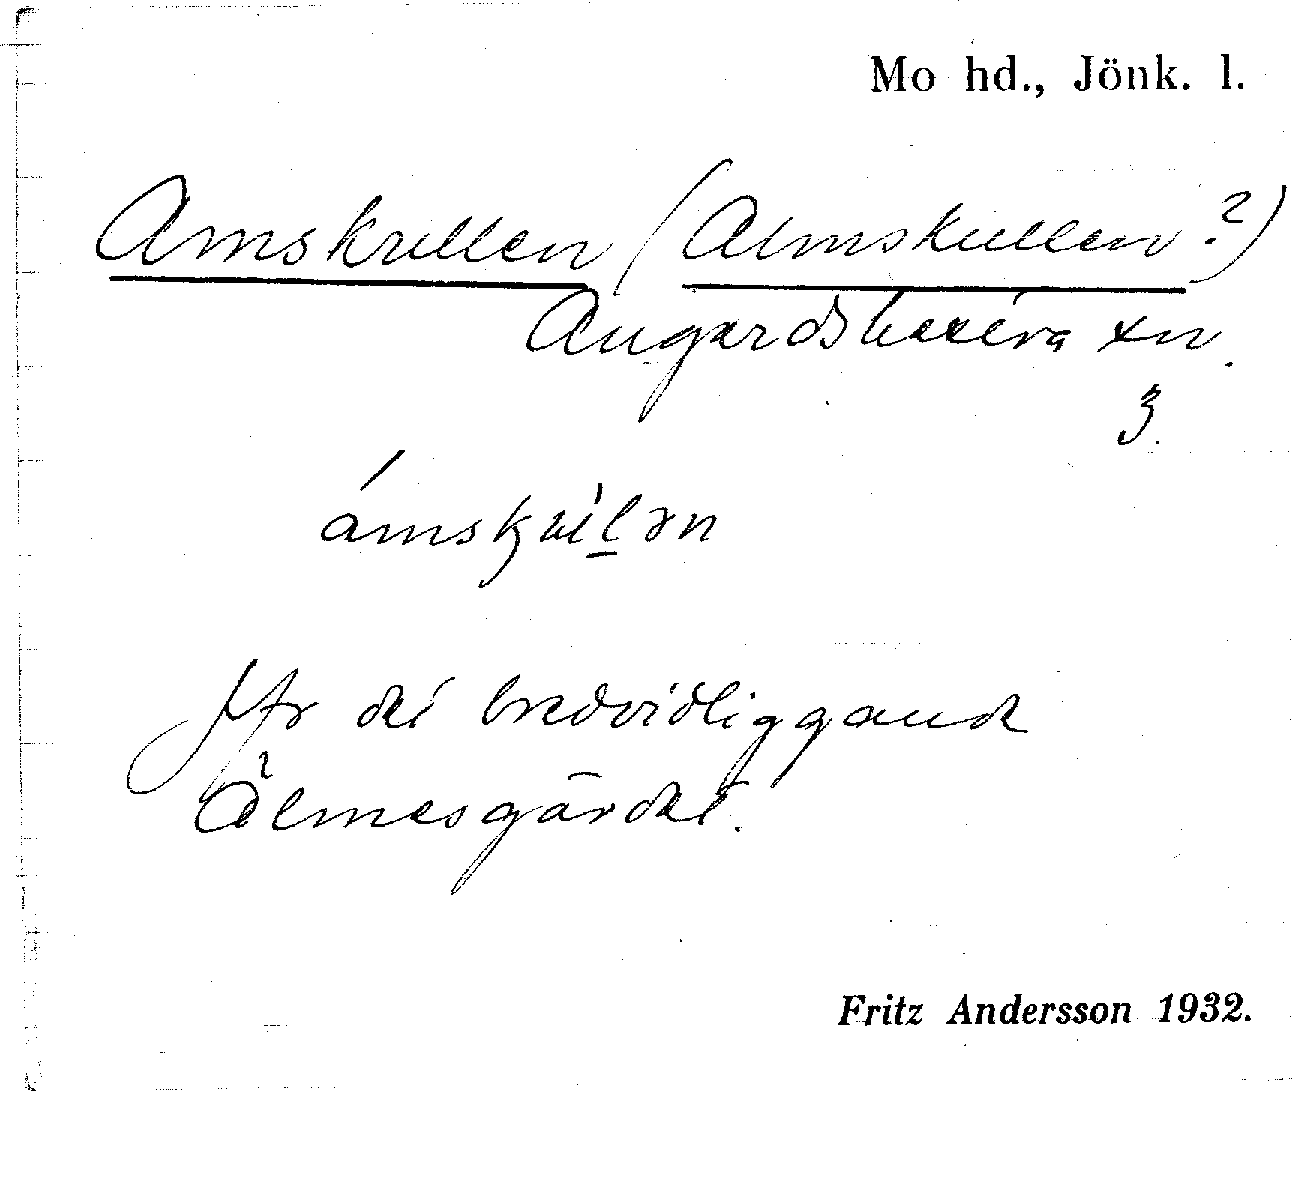 Mo hd., Jönk. l.
Amskullen (Almskullen?)
Angerdshestra sn.
3.
Jfr det bredvidliggande
Älmesgärdet.
Fritz Andersson 1932.